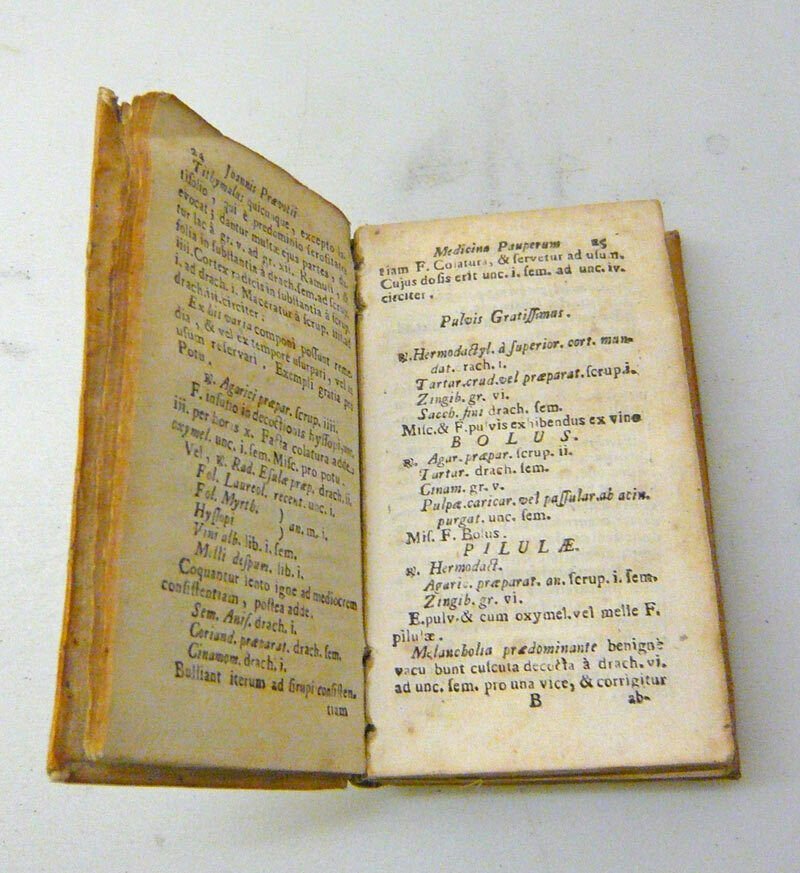 24 Joannis Prævotii
Tithymalus quicunque, excepto la-
tifolio, qui è predominio serositates
evocat; dantur multæ ejus partes, da-
tur lac à gr. v. ad gr. xii. Ramuli, &
folia in substantiâ à drach. sem. ad scrup.
iiii. Cortex radicis in substantia à scrup.
i. ad drach. i. Maceratur à scrup. iiii. ad
drach. iii. circiter.
Ex his varia componi possunt reme-
dia, & vel ex tempore usurpari, vel in
usum reservari. Exempli gratia pro
Potu.
℞. Agarici præpar. scrup. iiii.
F. infusio in decoctionis hyssopi
iii. per horis x. Facta colatura adde
oxymel. unc. i. sem. Misc. pro potu.
Vel, ℞. Rad. Esulæ præp. drach. ii.
Fol. Laureol. recent. unc. i.
Fol. Myrth.
Hyssopi } an. m. i.
Vini alb. lib. i. sem.
Melli despum. lib. i.
Coquantur lento igne ad mediocrem
consistentiam, postea adde.
Sem. Anis. drach. i.
Coriand. præparat. drach. sem.
Cinamom. drach. i.
Bulliant iterum ad sirupi consisten-
tiam
Medicina Pauperum 25
tiam F. Colatura, & servetur ad usum.
Cujus dosis erit unc. i. sem. ad unc. iv.
circiter.
Pulvis Gratissimus.
℞. Hermodactyl. à superior. cort. mun-
dat. drach. i.
Tartar. crud. vel præparat. scrup. i.
Zingib. gr. vi.
Sacch. fini drach. sem.
Misc. & F. pulvis exhibendus ex vino
BOLUS.
℞. Agar. præpar. scrup. ii.
Tartar. drach. sem.
Cinam. gr. v.
Pulpæ caricar. vel passular. ab acin.
purgat. unc. sem.
Mis. F. Bolus.
PILULÆ.
℞. Hermodact.
Agaric. præparat. an. scrup. i. sem.
Zingib. gr. vi.
E. pulv. & cum oxymel. vel melle F.
pilulæ.
Melancholia prædominante benignè
vacu bunt cuscuta decocta à drach. vi.
ad unc. sem. pro una vice, & corrigitur
B ab-